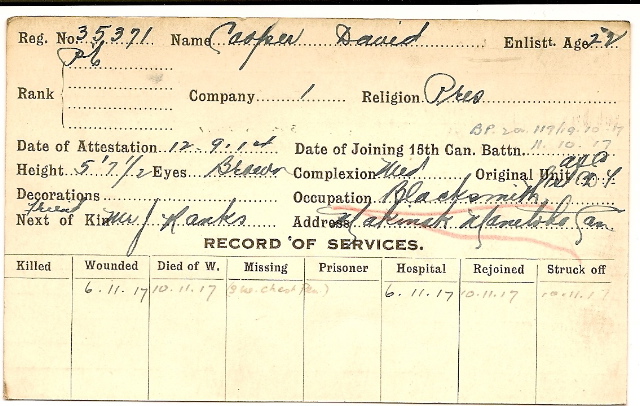 Reg. No. 35371 Name Casper David Enlistt. Age 22
Pte
Rank Company 1 Religion Pres
B.P. 20 119/19.10.17
11.10.17
Date of Attestation 12.9.14 Date of Joining 15th Can. Battn.
Height 5'7 1/2 Eyes Brown Complexion Med Original Unit
Decorations Occupation Blacksmith
Friend
Next of Kin Mr J Hanks Address Can
RECORD OF SERVICES.
Killed Wounded Died of W. Missing Prisoner Hospital Rejoined Struck off
6.11.17 10.11.17 (G.S.W. Chest Pen) 6.11.17 10.11.17 10.11.17